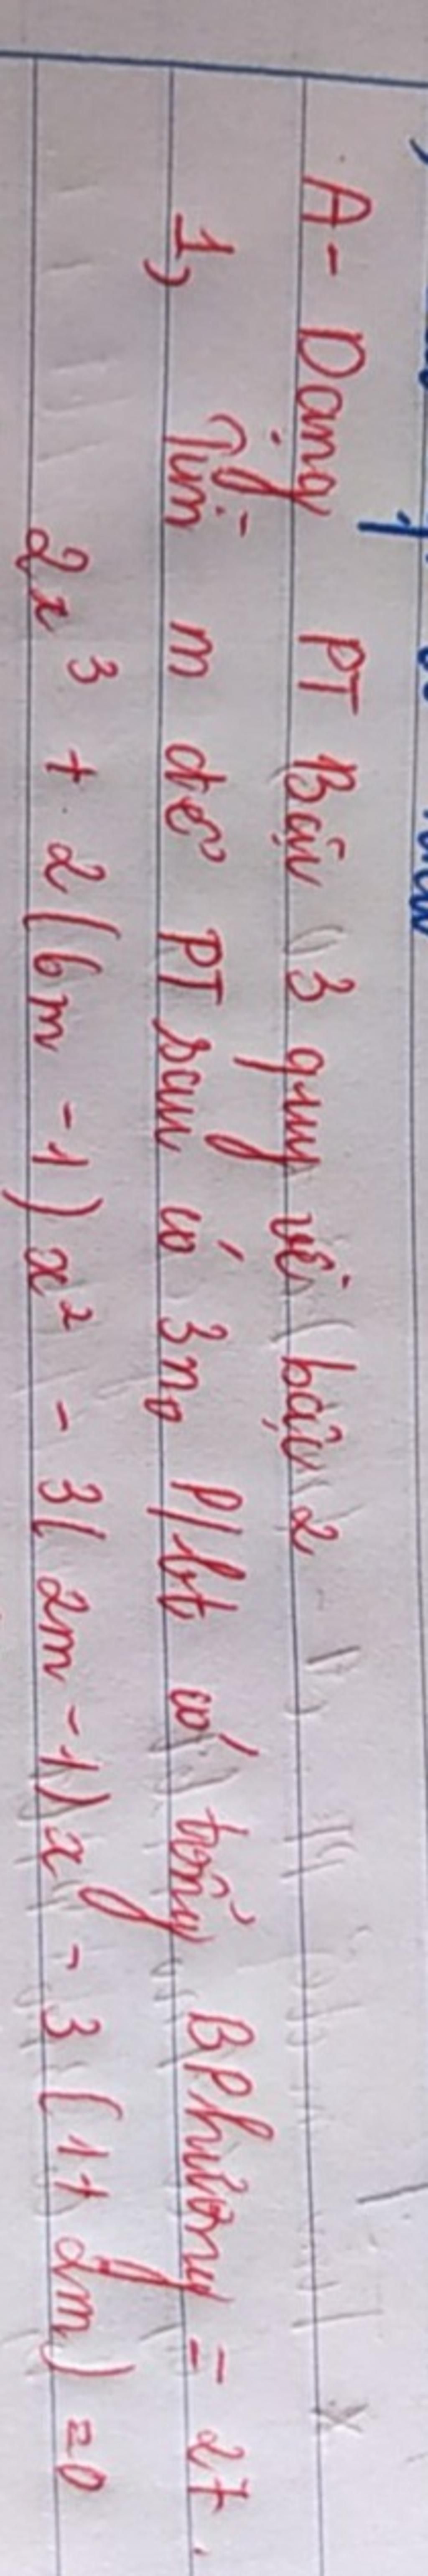 A- Dạng PT Bậc 3 quy về bậc 2
1, Tìm m để PT sau có 3 no P/bt có tổng BPhương = 27.
2x³ + 2(6m - 1)x² - 3(2m - 1)x - 3(1 + 2m) = 0